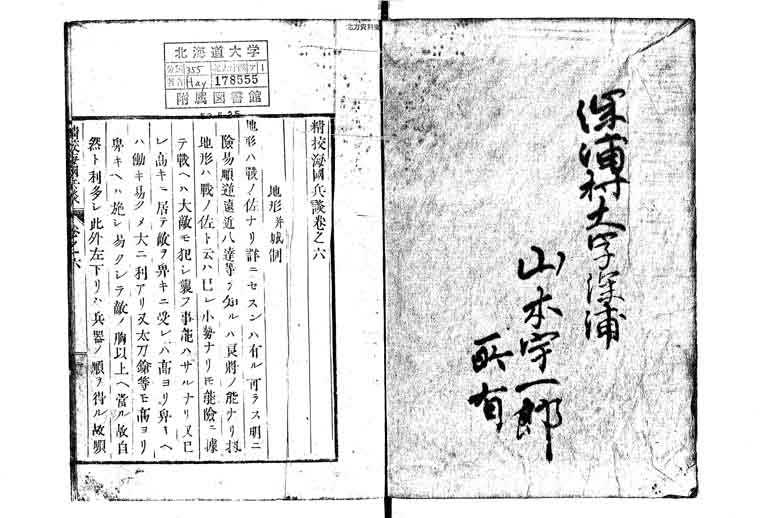 深浦村大字深浦
山本宇一郎
所有
北方資料室
北海道大学
355
Hay
178555
附属図書館
精校海國兵談卷之六
地形并城制
地形ハ戰ノ佐ナリ詳ニセスンハ有ル可ラス明ニ
險易順道遠近八達等ヲ知ルハ良將ノ能ナリ扨
地形ハ戰ノ佐ト云ハ已レ小勢ナリ𪜈能險ニ據
テ戰ヘハ大敵モ犯シ襲フ事能ハサルナリ又已
レ高キニ居テ敵ヲ卑キニ受レハ高ヨリ卑キヘ
ハ働キ易クメ大ニ利アリ又太刀鎗等モ高ヨリ
卑キヘハ施シ易クシテ敵ノ胸以上ヘ當ル故自
然ト利多シ此外左下リハ兵器ノ順ヲ得ル故順
精校海國兵談 卷之六